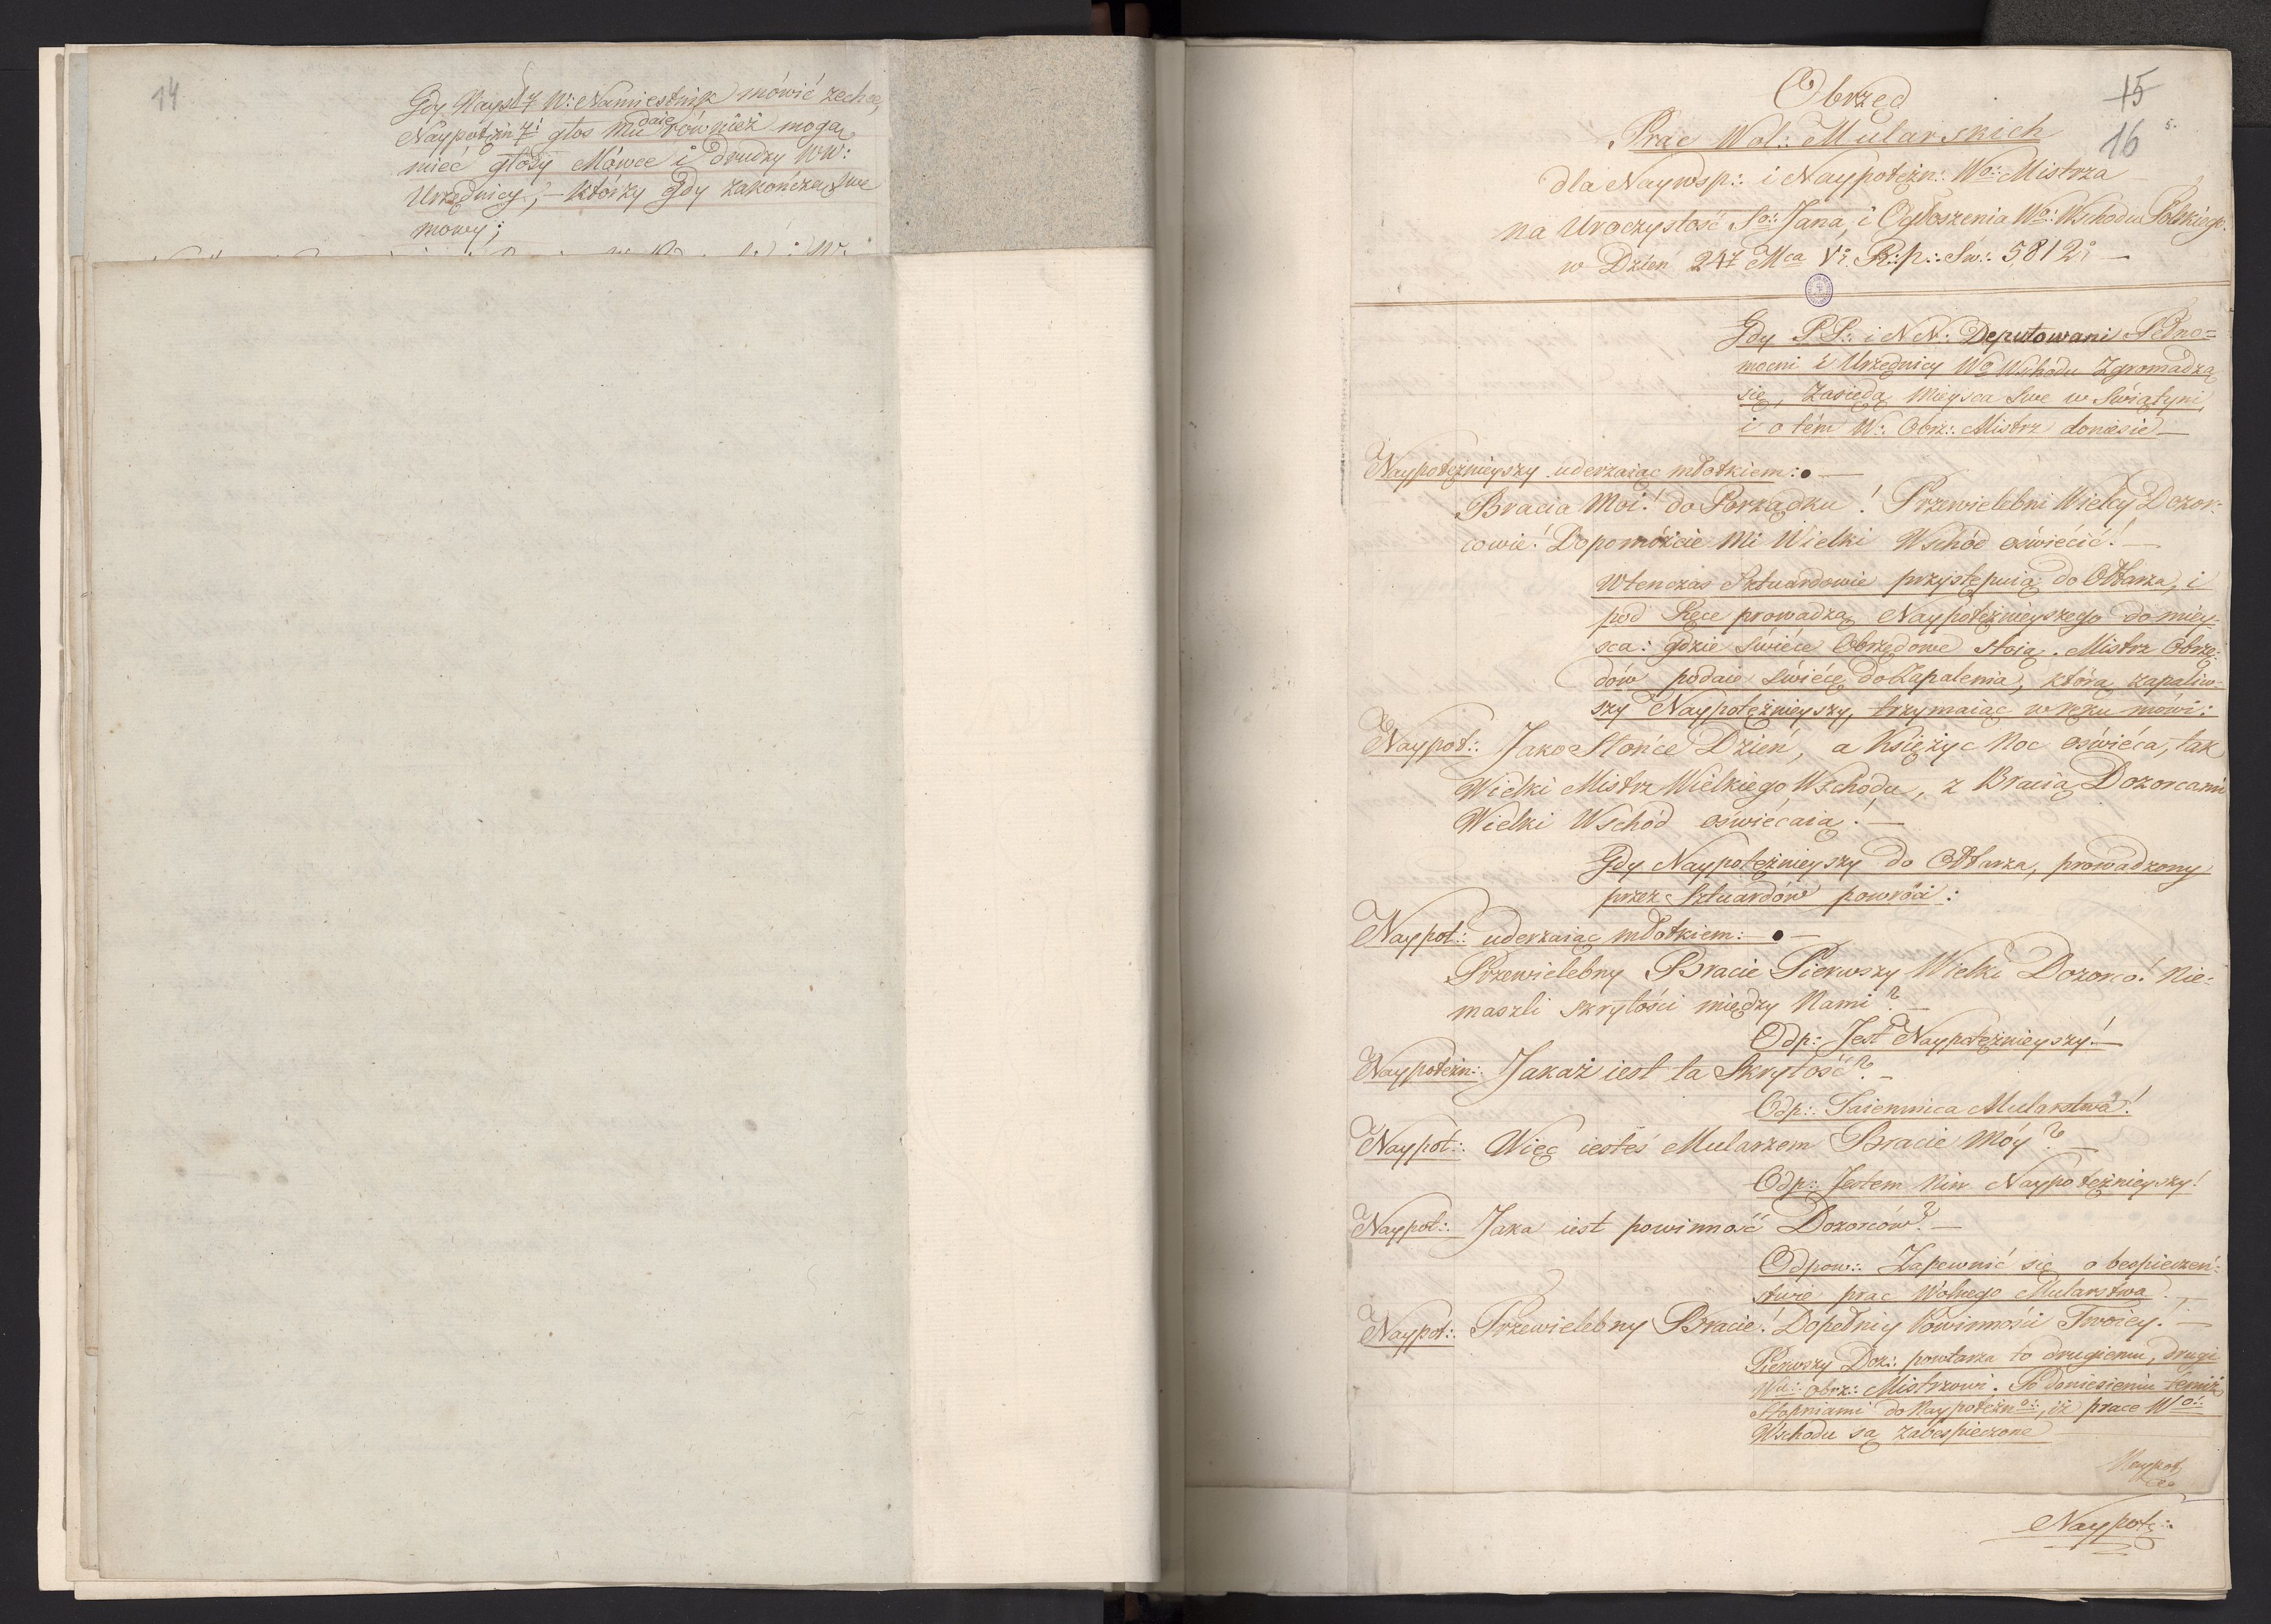 14
Gdy Nayp W: Namiestnik mówić zechce,
Naypotężn: głos mu daie również mogą
mieć głosy Mówce i drudzy WW:
Urzędnicy, – którzy gdy zakończą swe
mowy;
Obrzęd
15
16
5.
Prac Wol:. Mularskich
dla Naywsp:. i Naypotężn:. Wo:. Mistrza
na Uroczystość So:. Jana, i Ogłoszenia Wo:. Wschodu Polskiego.
w Dzień 24 Mca V: R:.p:. Św:. 5812: –
Gdy PP:. i NN:. Deputowani Pełno=
mocni i Urzędnicy Wo Wschodu Zgromadzą
się, Zasiędą Mieysca Swe w Świątyni,
i o tém W:. Obrz:. Mistrz doniesie –
Naypotężnieyszy uderzaiąc młotkiem: ● –
Bracia Moi! do Porządku! Przewielebni Wielcy Dozor:
cowie! Dopomóżcie Mi Wielki Wschód oświécić! –
Wtenczas Sztuardowie przystępuią do Ołtarza, i
pod Ręce prowadzą Naypotężnieyszego do miey-
sca: gdzie świéce Obrzędowe stoią. Mistrz Obrzę:
dów podaie świécę do Zapalenia, którą zapaliw-
szy Naypotężnieyszy, trzymaiąc w ręku mówi:
Naypot:. Jako Słońce Dzień, a Księżyc Noc oświéca, tak
Wielki Mistrz Wielkiego Wschodu, z Bracią Dozorcami
Wielki Wschód oświécaią! –
Gdy Naypotężnieyszy do Ołtarza, prowadzony
przez Sztuardów powróci:
Naypot:. uderzaiąc młotkiem: ● –
Przewielebny Bracie Pierwszy Wielki Dozorco! Nie-
maszli skrytości między Nami? –
Odp: Jest Naypotężnieyszy! –
Naypotężn:. Jakaż iest ta Skrytość? –
Odp:. Taiemnica Mularstwa!
Naypot:. Więc iesteś Mularzem Bracie Móy? –
Odp:. Jestem Nim Naypotężnieyszy!
Naypot:. Jaka iest powinność Dozorców? –
Odpow:. Zapewnić się o bespieczeń-
stwie prac Wolnego Mularstwa. –
Naypot:. Przewielebny Bracie! Dopełniy Powinności Twoiey! –
Pierwszy Doz:. powtarza to drugiemu, drugi
Wu:. Obrz:. Mistrzowi. Po doniesieniu temiż
Stopniami do Naypotężno:., iż prace Wo:.
Wschodu są zabespieczone
Naypot,
Naypotę:.